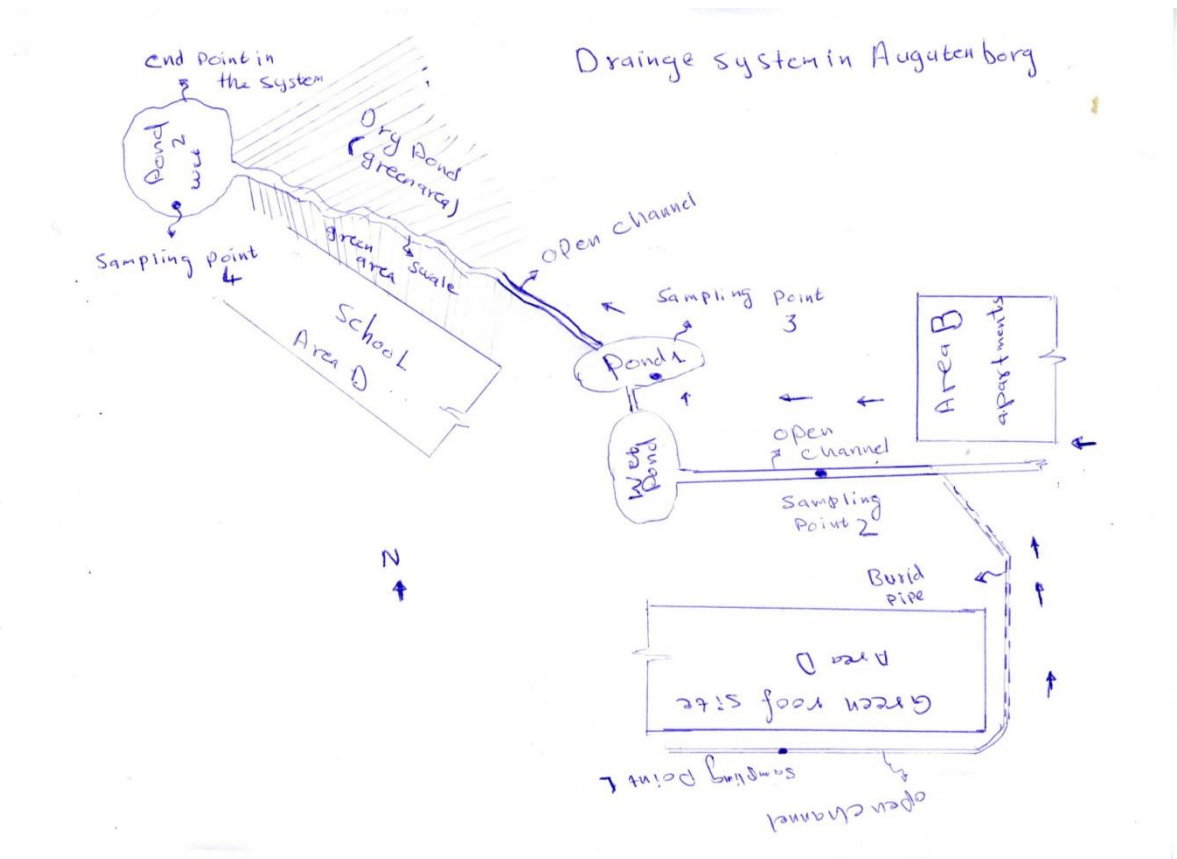 Drainge system in Augutenborg
End Point in
the system
Pond
2
wet
Sampling point
4
Dry pond
(green area)
green
area
swale
open channel
School
Area D
Sampling Point
3
Pond 1
Wet
Pond
Area B
apartments
open
channel
Sampling
Point 2
N
Burid
pipe
Area D
Green roof site
Sampling Point 1
open channel